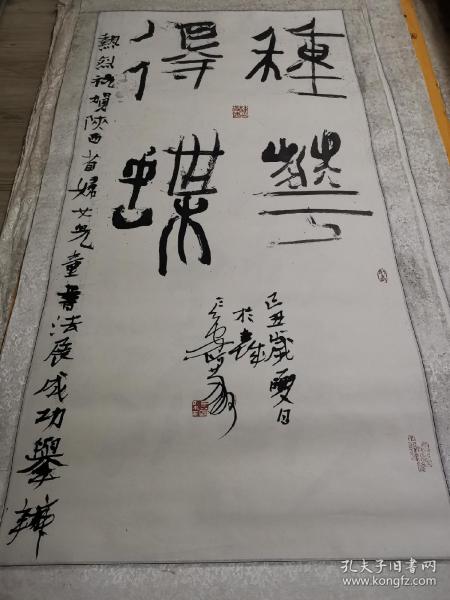 種華
得蝶
己丑歲夏日
於長
熱烈祝賀陝西省婦女兒童書法展成功舉辦
孔夫子旧书网
www.kongfz.com